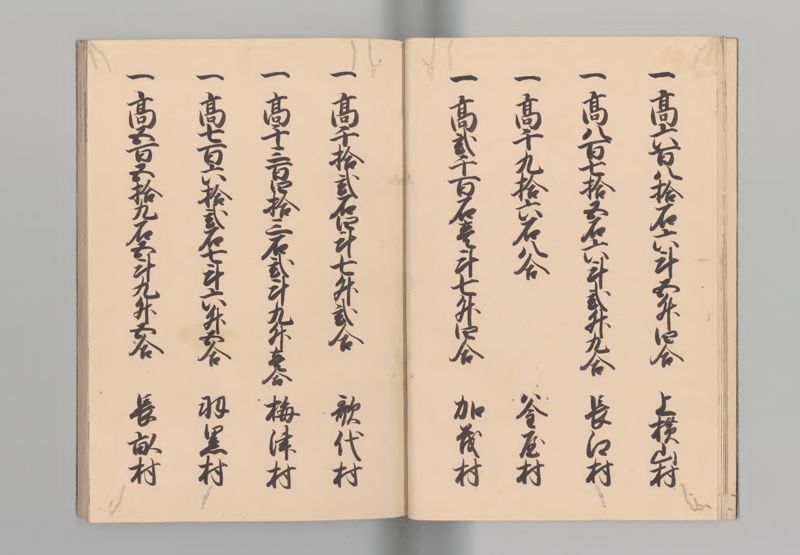 一 高六百八拾石六斗五升四合 上横山村
一 高八百七拾五石六斗弐升九合 長江村
一 高千九拾六石八合 釜屋村
一 高弐千百石壱斗七升四合 加茂村
一 高千拾弐石四斗七升弐合 歌代村
一 高千三百四拾三石弐斗九升壱合 梅津村
一 高七百六拾弐石七斗六升五合 羽黒村
一 高五百五拾九石五斗九升五合 長畝村